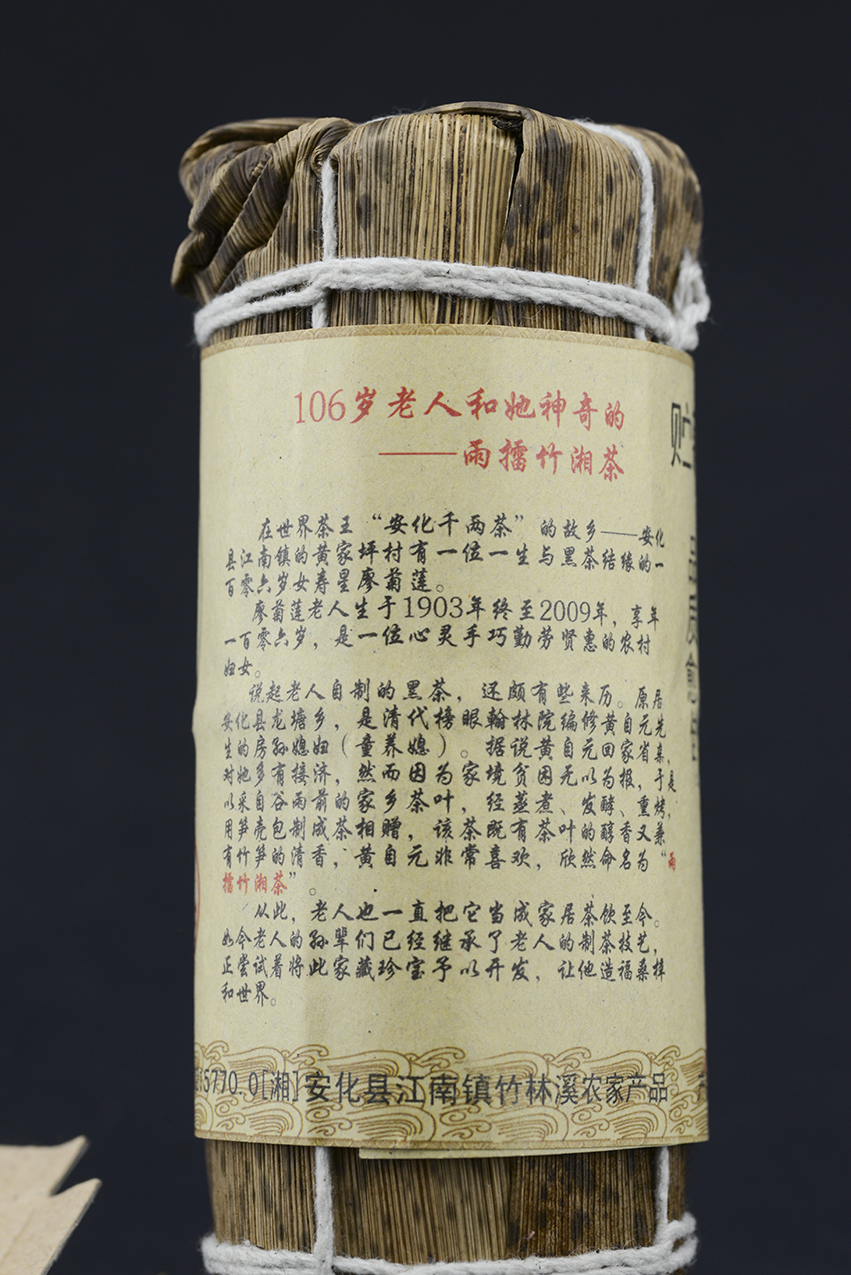 106岁老人和她神奇的
——雨擂竹湘茶
在世界茶王“安化千两茶”的故乡——安化
县江南镇的黄家坪村有一位一生与黑茶结缘的一
百零六岁女寿星廖菊莲。
廖菊莲老人生于1903年终至2009年，享年
一百零六岁，是一位心灵手巧勤劳贤惠的农村
妇女。
说起老人自制的黑茶，还颇有些来历。原居
安化县龙塘乡，是清代榜眼翰林院编修黄自元先
生的房孙媳妇（童养媳）。据说黄自元回家省亲，
对她多有接济，然而因为家境贫困无以为报，于是
以采自谷雨前的家乡茶叶，经蒸煮、发酵、熏烤，
用笋壳包制成茶相赠，该茶既有茶叶的醇香又兼
有竹笋的清香，黄自元非常喜欢，欣然命名为“雨
擂竹湘茶”。
从此，老人也一直把它当成家居茶饮至今。
如今老人的孙辈们已经继承了老人的制茶技艺，
正尝试着将此家藏珍宝予以开发，让他造福桑梓
和世界。
5770.0[湘]安化县江南镇竹林溪农家产品
贮